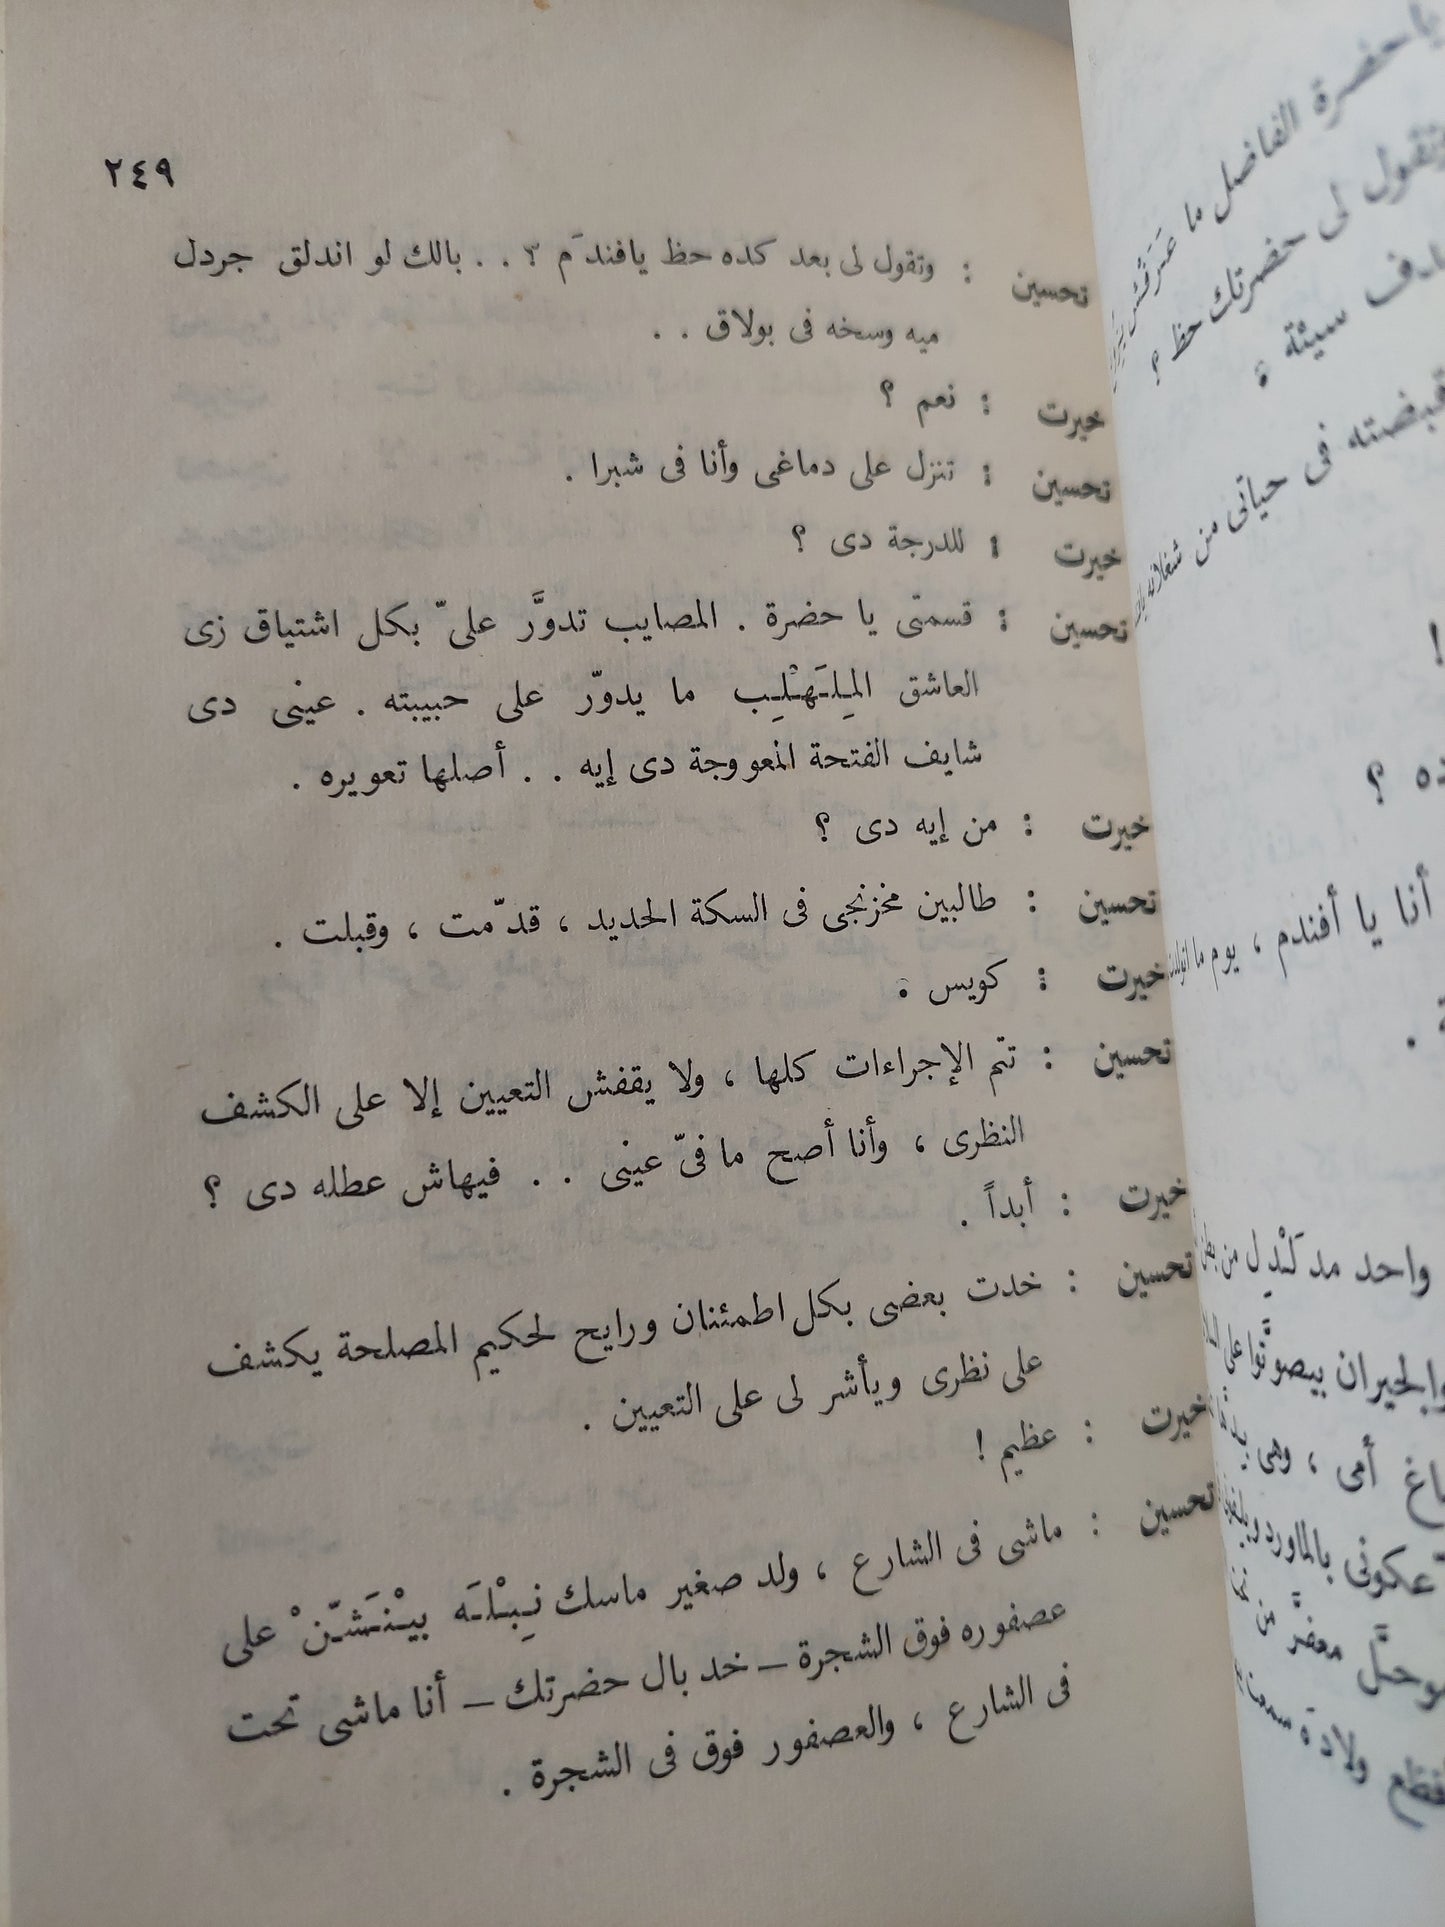 ٢٤٩
تحسين : وتقول لى بعد كده حظ يافندَم ؟ . . بالك لو اندلق جردل
ميه وسخه فى بولاق . .
خيرت : نعم ؟
تحسين : تنزل على دماغى وأنا فى شبرا .
خيرت : للدرجة دى ؟
تحسين : قسمتى يا حضرة . المصايب تدوَّر علىّ بكل اشتياق زى
العاشق المِلَهْلِب ما يدوّر على حبيبته . عينى دى
شايف الفتحة المعووجة دى إيه . . أصلها تعويره .
خيرت : من إيه دى ؟
تحسين : طالبين مخزنجى فى السكة الحديد ، قدّمت ، وقبلت .
خيرت : كويس .
تحسين : تتم الإجراءات كلها ، ولا يقفش التعيين إلا على الكشف
النظرى ، وأنا أصح ما فىّ عينى . . فيهاش عطله دى ؟
خيرت : أبداً .
تحسين : خدت بعضى بكل اطمئنان ورايح لحكيم المصلحة يكشف
على نظرى ويأشر لى على التعيين .
خيرت : عظيم !
تحسين : ماشى فى الشارع ، ولد صغير ماسك نِبْلَه بيْنَشّنْ على
عصفوره فوق الشجرة – خد بال حضرتك – أنا ماشى تحت
فى الشارع ، والعصفور فوق فى الشجرة .
يا حضرة الفاضل ما
تقول لى حضرتك حظ ؟
سيئة .
قبضته فى حياتى من
!
ده ؟
أنا يا أفندم ، يوم ما
.
واحد
والجيران بيصوَّتوا على
أمى ، وهى
من
ولادة